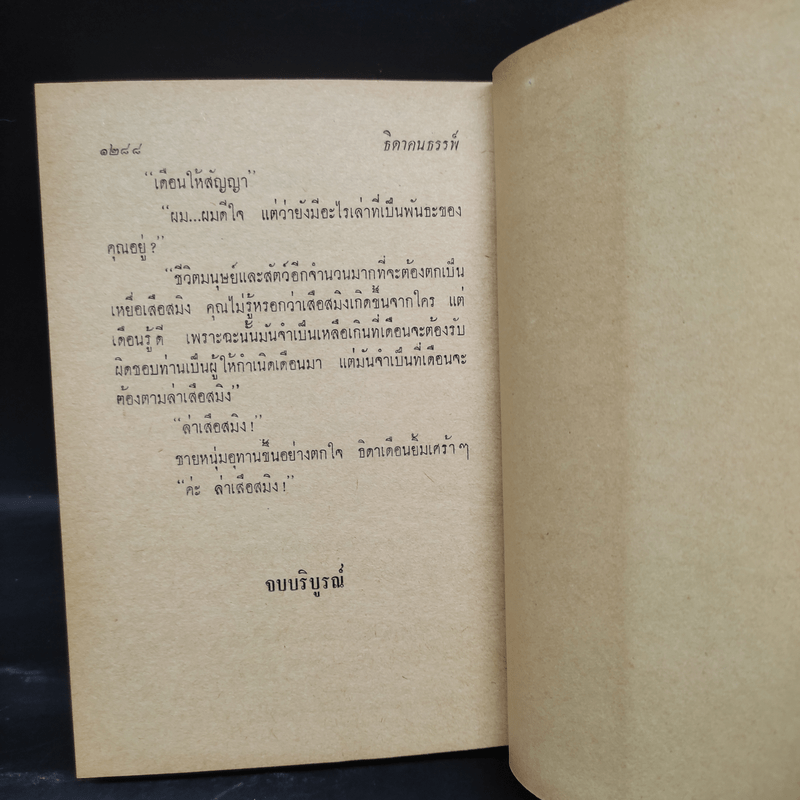 ๑๒๘๘ ธิดาคนธรรพ์
“เดือนให้สัญญา”
“ผม...ผมดีใจ แต่ว่ายังมีอะไรเล่าที่เป็นพันธะของ
คุณอยู่?”
“ชีวิตมนุษย์และสัตว์อีกจำนวนมากที่จะต้องตกเป็น
เหยื่อเสือสมิง คุณไม่รู้หรอกว่าเสือสมิงเกิดขึ้นจากใคร แต่
เดือนรู้ดี เพราะฉะนั้นมันจำเป็นเหลือเกินที่เดือนจะต้องรับ
ผิดชอบท่านเป็นผู้ให้กำเนิดเดือนมา แต่มันจำเป็นที่เดือนจะ
ต้องตามล่าเสือสมิง”
“ล่าเสือสมิง!”
ชายหนุ่มอุทานขึ้นอย่างตกใจ ธิดาเดือนยิ้มเศร้าๆ
“ค่ะ ล่าเสือสมิง!”
จบบริบูรณ์